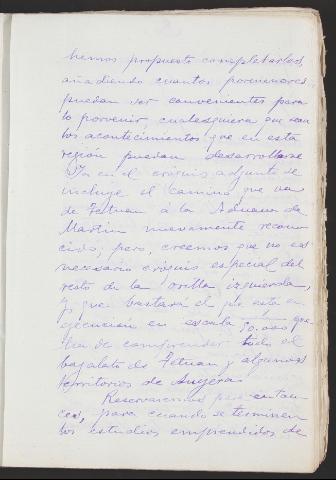 hemos propuesto completarlos,
añadiendo cuantos pormenores
puedan ser convenientes para
lo porvenir, cualesquiera que sean
los acontecimientos que en esta
región puedan desarrollarse
Ya en el croquis adjunto se
incluye el camino que va
de Tetuan á la Aduana de
Martin nuevamente recono
cido; pero, creemos que no es
necesario croquis especial del
resto de la orilla izquierda,
ya que bastará el que está en
ejecución en escala 50.000 que
ha de comprender todo el
bajalato de Tetuan y algunos
territorios de Anyera.
Reservaremos para enton
ces, para cuando se terminen
los estudios emprendidos de